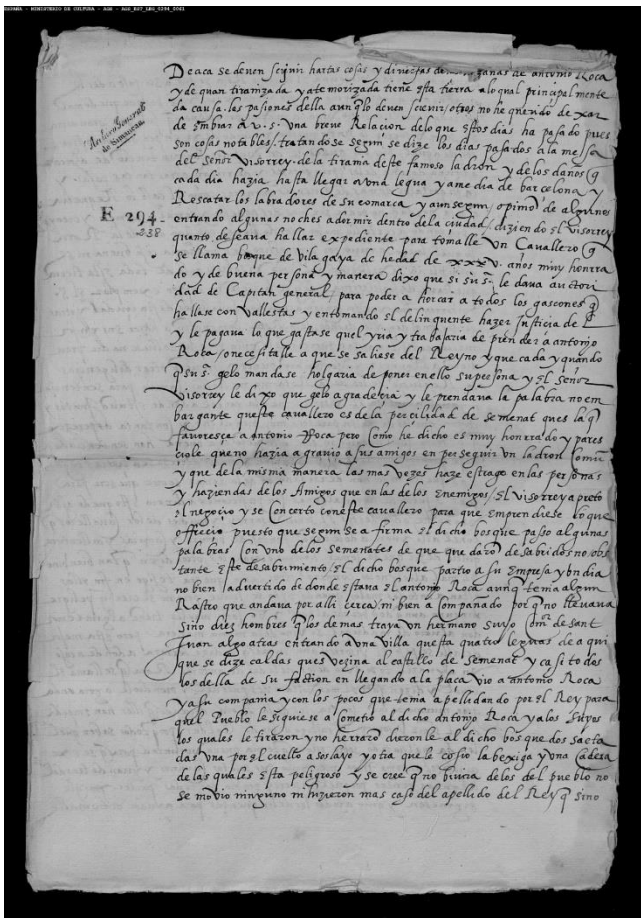 ESPAÑA - MINISTERIO DE CULTURA - AGS - AGS_EST_LEG_0294_0061
Archivo General
de Simancas
E 294-
238
De aca se deven screuir hartas cosas y diversas de antonio Roca
y de quan tiranizada y atemorizada tiene esta tierra a lo qual principalmente
da causa las pasiones della aunqlo deven screuir, otros no he querido dexar
de embiar a v. s. una breve Relacion de lo que estos dias ha pasado pues
son cosas notables, tratandose segun se dize los dias pasados a la messa
del señor visorrey de la tirania deste famoso ladron y de los daños q
cada dia hazia hasta llegar a una legua y a media de barcelona y
Rescatar los labradores de su comarca y aun segun opinio de algunos
entrando algunas noches a dormir dentro de la ciudad, diziendo el visorrey
quanto deseava hallar expediente para tomalle un Cavallero q
se llama bosque de vila gaya de hedad de años muy honrra
do y de buena persona y manera dixo que si su s. le dava auctori
dad de Capitan general para poder a horcar a todos los gascones q
hallase con vallestas y en tomando el delinquente hazer justicia del
y le pagava lo que gastase quel yria y trabajaria de prender a antonjo
Roca, o necesitalle a que se saliese del Reyno y que cada y quando
q su s. gelo mandase holgaria de poner en ello su persona y el señor
visorrey le dixo que gelo agradecia y le prendava la palabra no em
bargante queste cavallero es de la parcilidad de semenat ques la q
favoresce a antonio Roca pero como he dicho es muy honrrado y pares
ciole que no hazia agravio a sus amigos en perseguir un ladron comu
y que de la misma manera las mas vezes haze estrago en las personas
y haziendas de los Amigos que en las de los Enemigos, El visorrey apreto
el negocio y se concerto con este cavallero para que emprendiese lo que
offrecio puesto que segun se afirma El dicho bosque passo algunas
palabras Con uno de los semenates de que quedaro desabridos no obs
tante Este desabrimiento El dicho bosque partio a su Empresa y un dia
no bien advertido de donde estava El antonjo Roca aunq tenia algun
Rastro que andava por alli cerca, ni bien a compañado por q no llevava
sino diez hombres q los demas traya un hermano suyo de sant
Juan algo atras entrando a una villa questa quatro leguas de aqui
que se dize caldas ques vezina al castillo de semenat y casi todos
los della de su faction en llegando a la placa vio a antonio Roca
y a su compania y con los pocos que tenia a pellidando por el Rey para
quel Pueblo le siguiese a cometio al dicho antonjo Roca y a los suyos
los quales le tiraron y no herraro dieronle al dicho bosque dos saeta
das una por el cuello a soslayo y otra que le cosio la bexiga y una Cadera
de las quales Esta peligroso y se cree q no bivira de los del pueblo no
se movio ninguno ni hizieron mas caso del apellido del Rey q sino